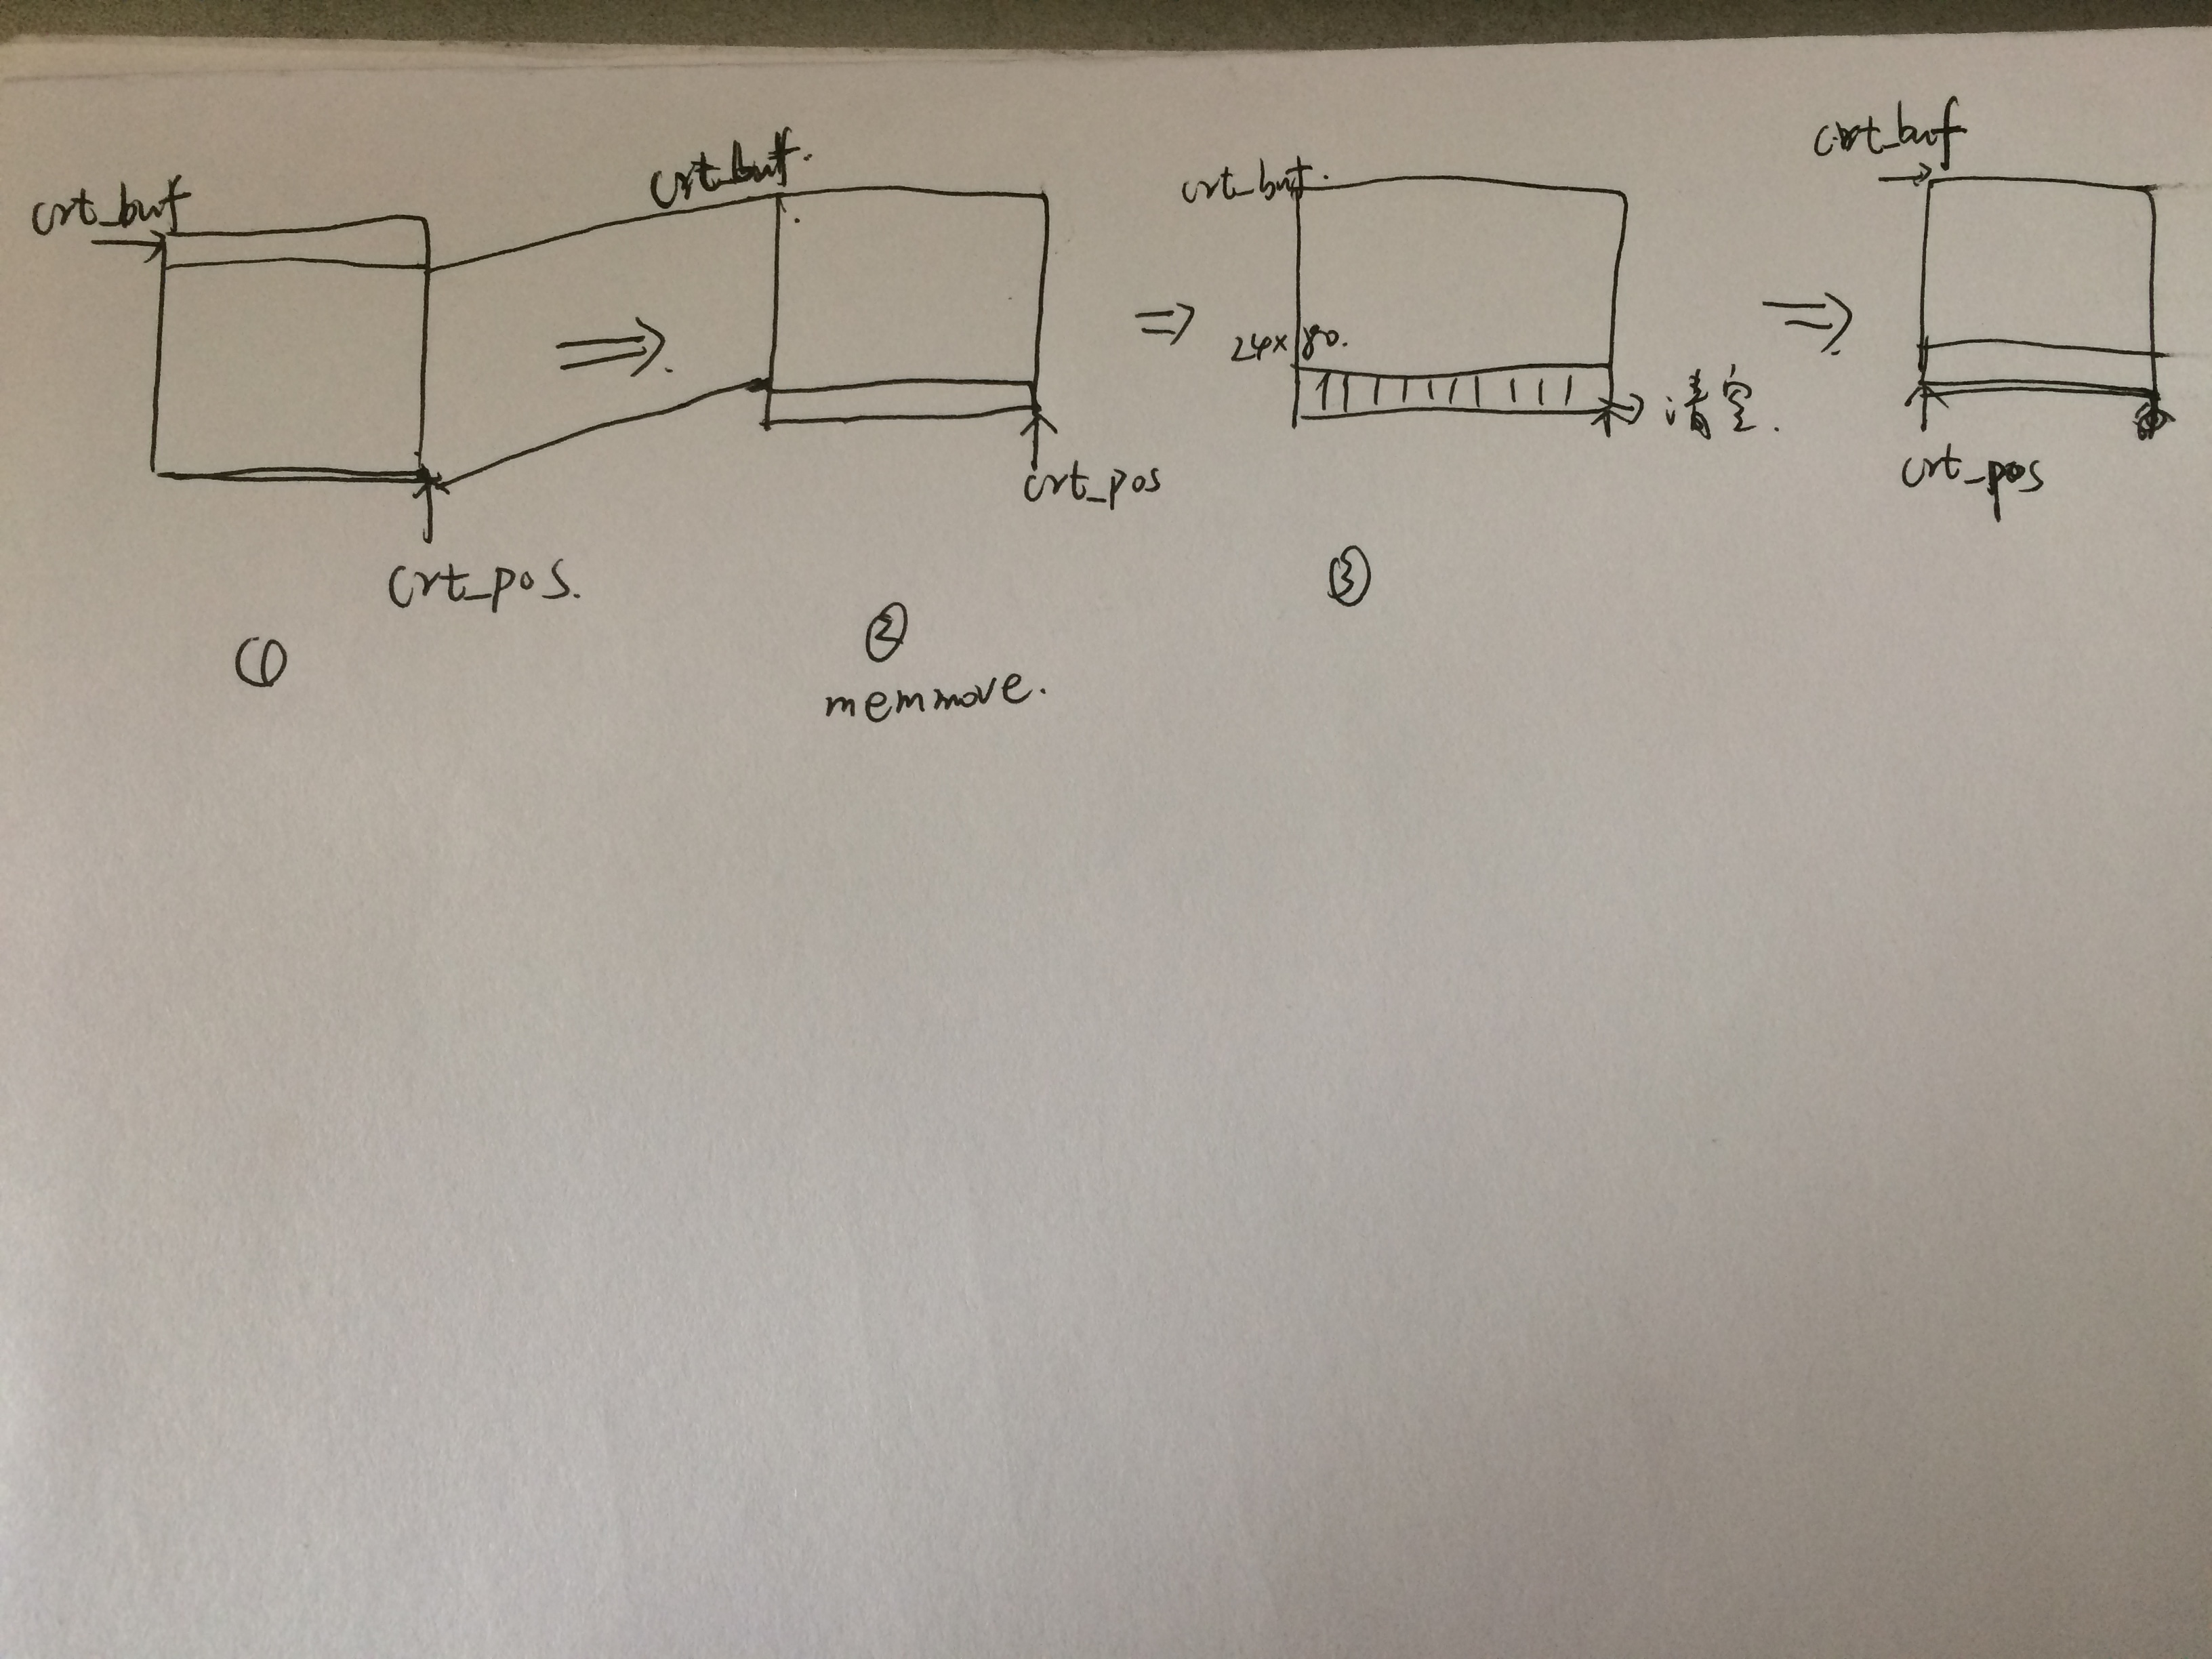 crt_buf
crt_pos.
①
crt_buf.
crt_pos
②
memmove.
crt_buf.
24×80.
清空.
③
crt_buf
crt_pos